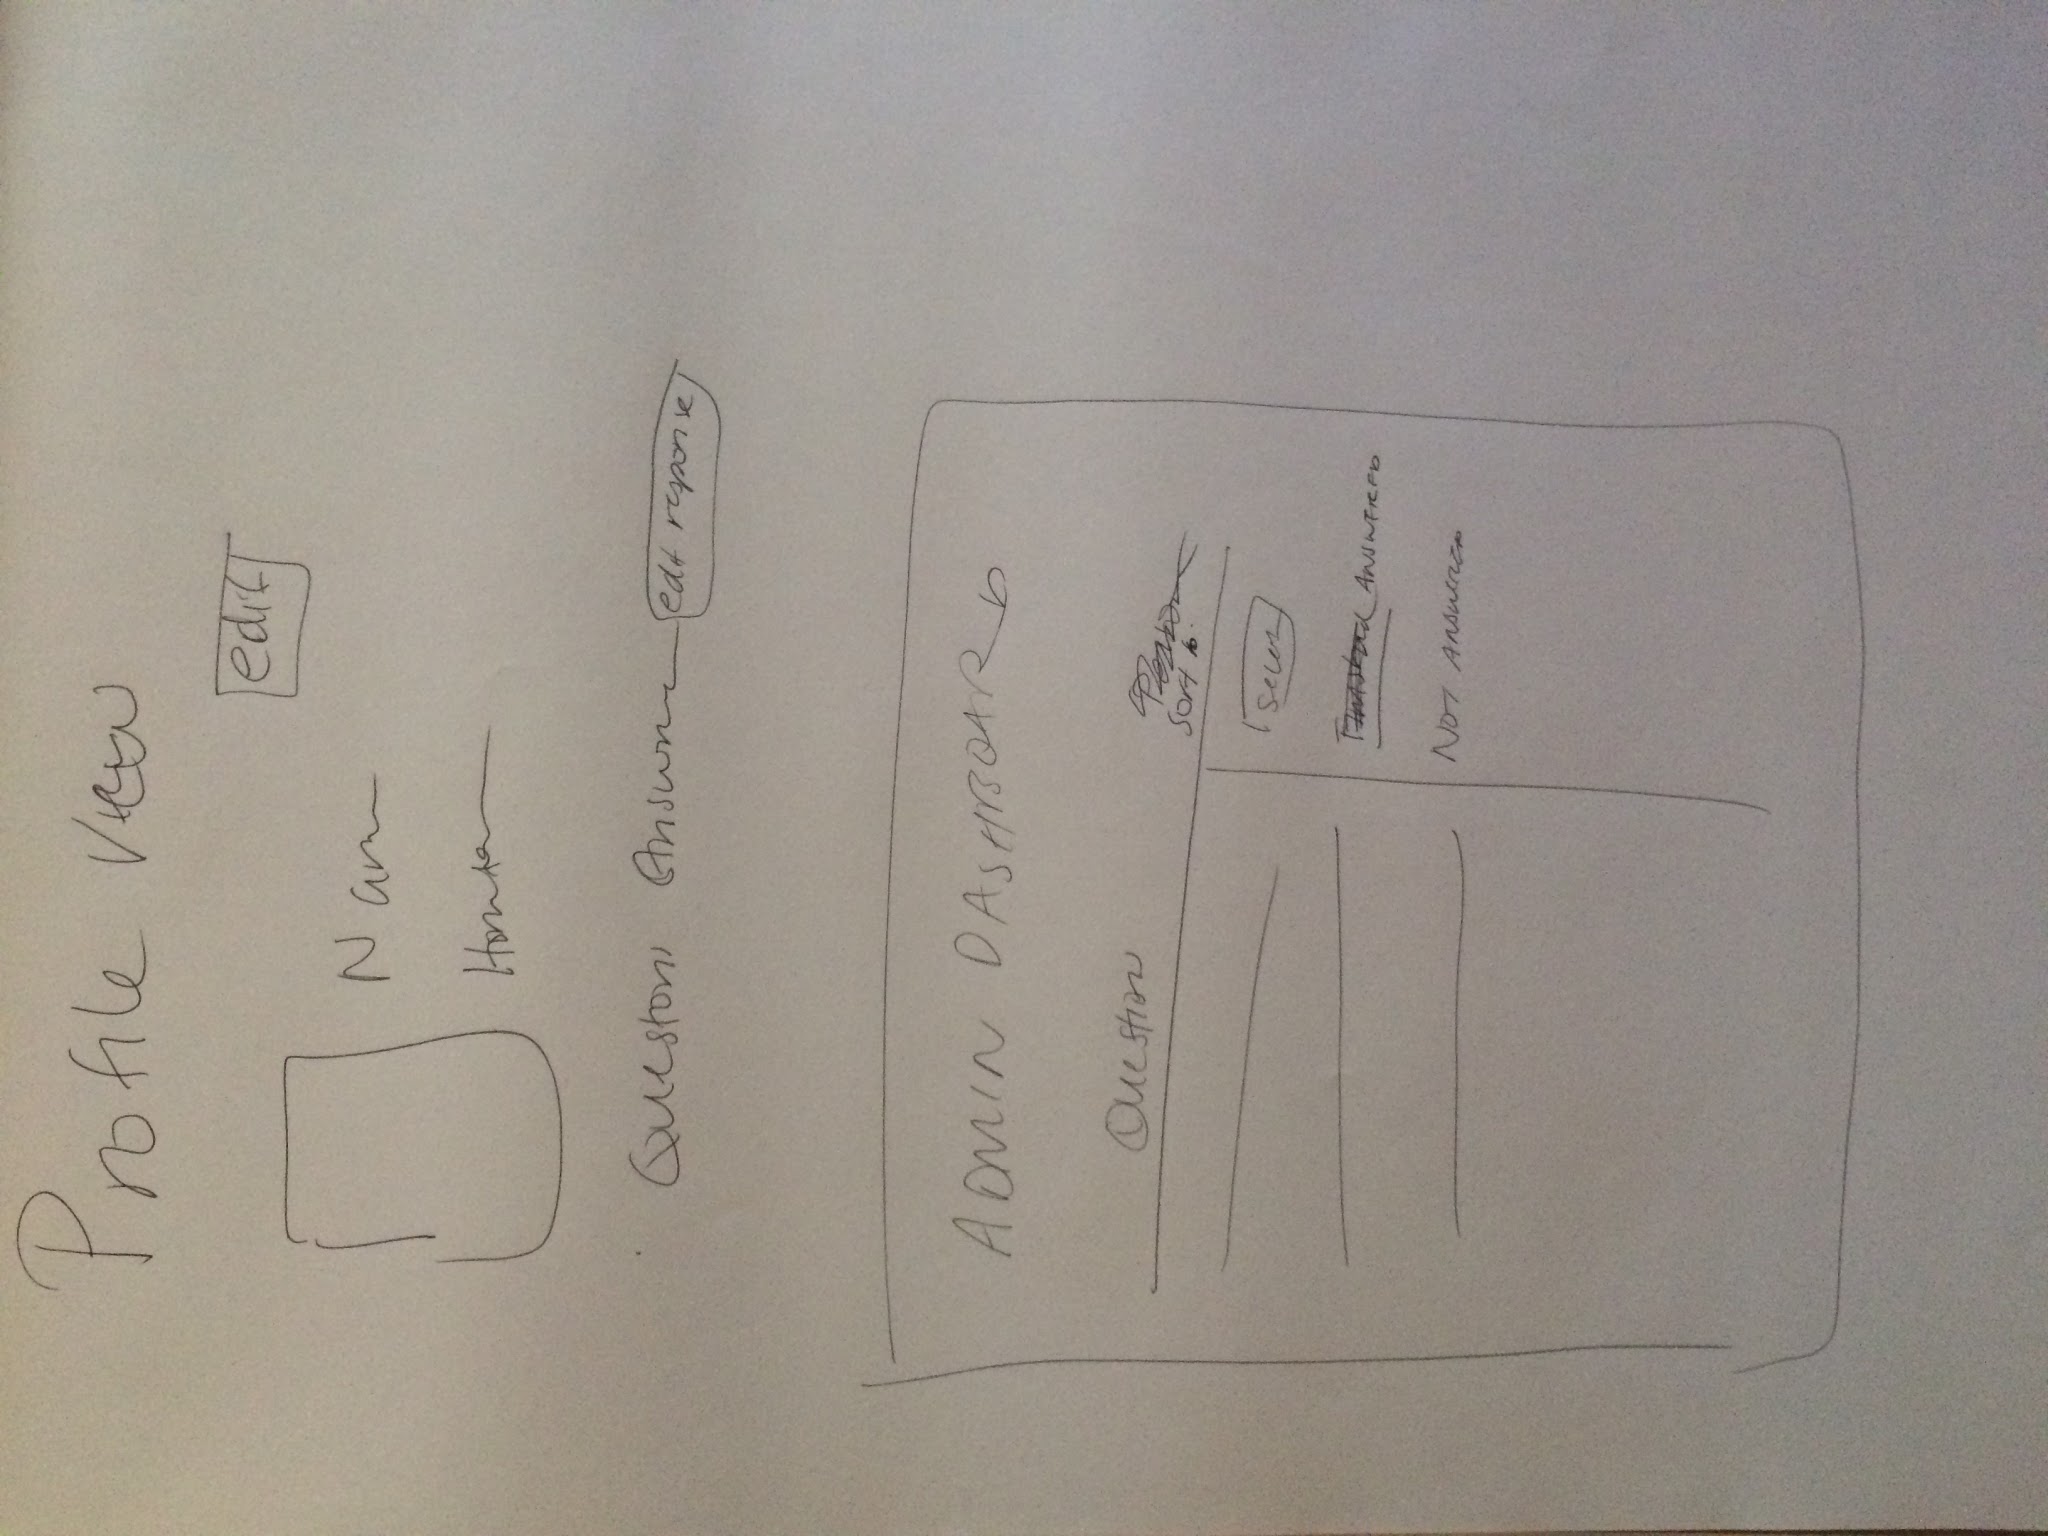 Profile View
edit
Name
Questions Answer edit response
ADMIN DASHBOARD
Question
Sort
ANSWERED
NOT ANSWERED